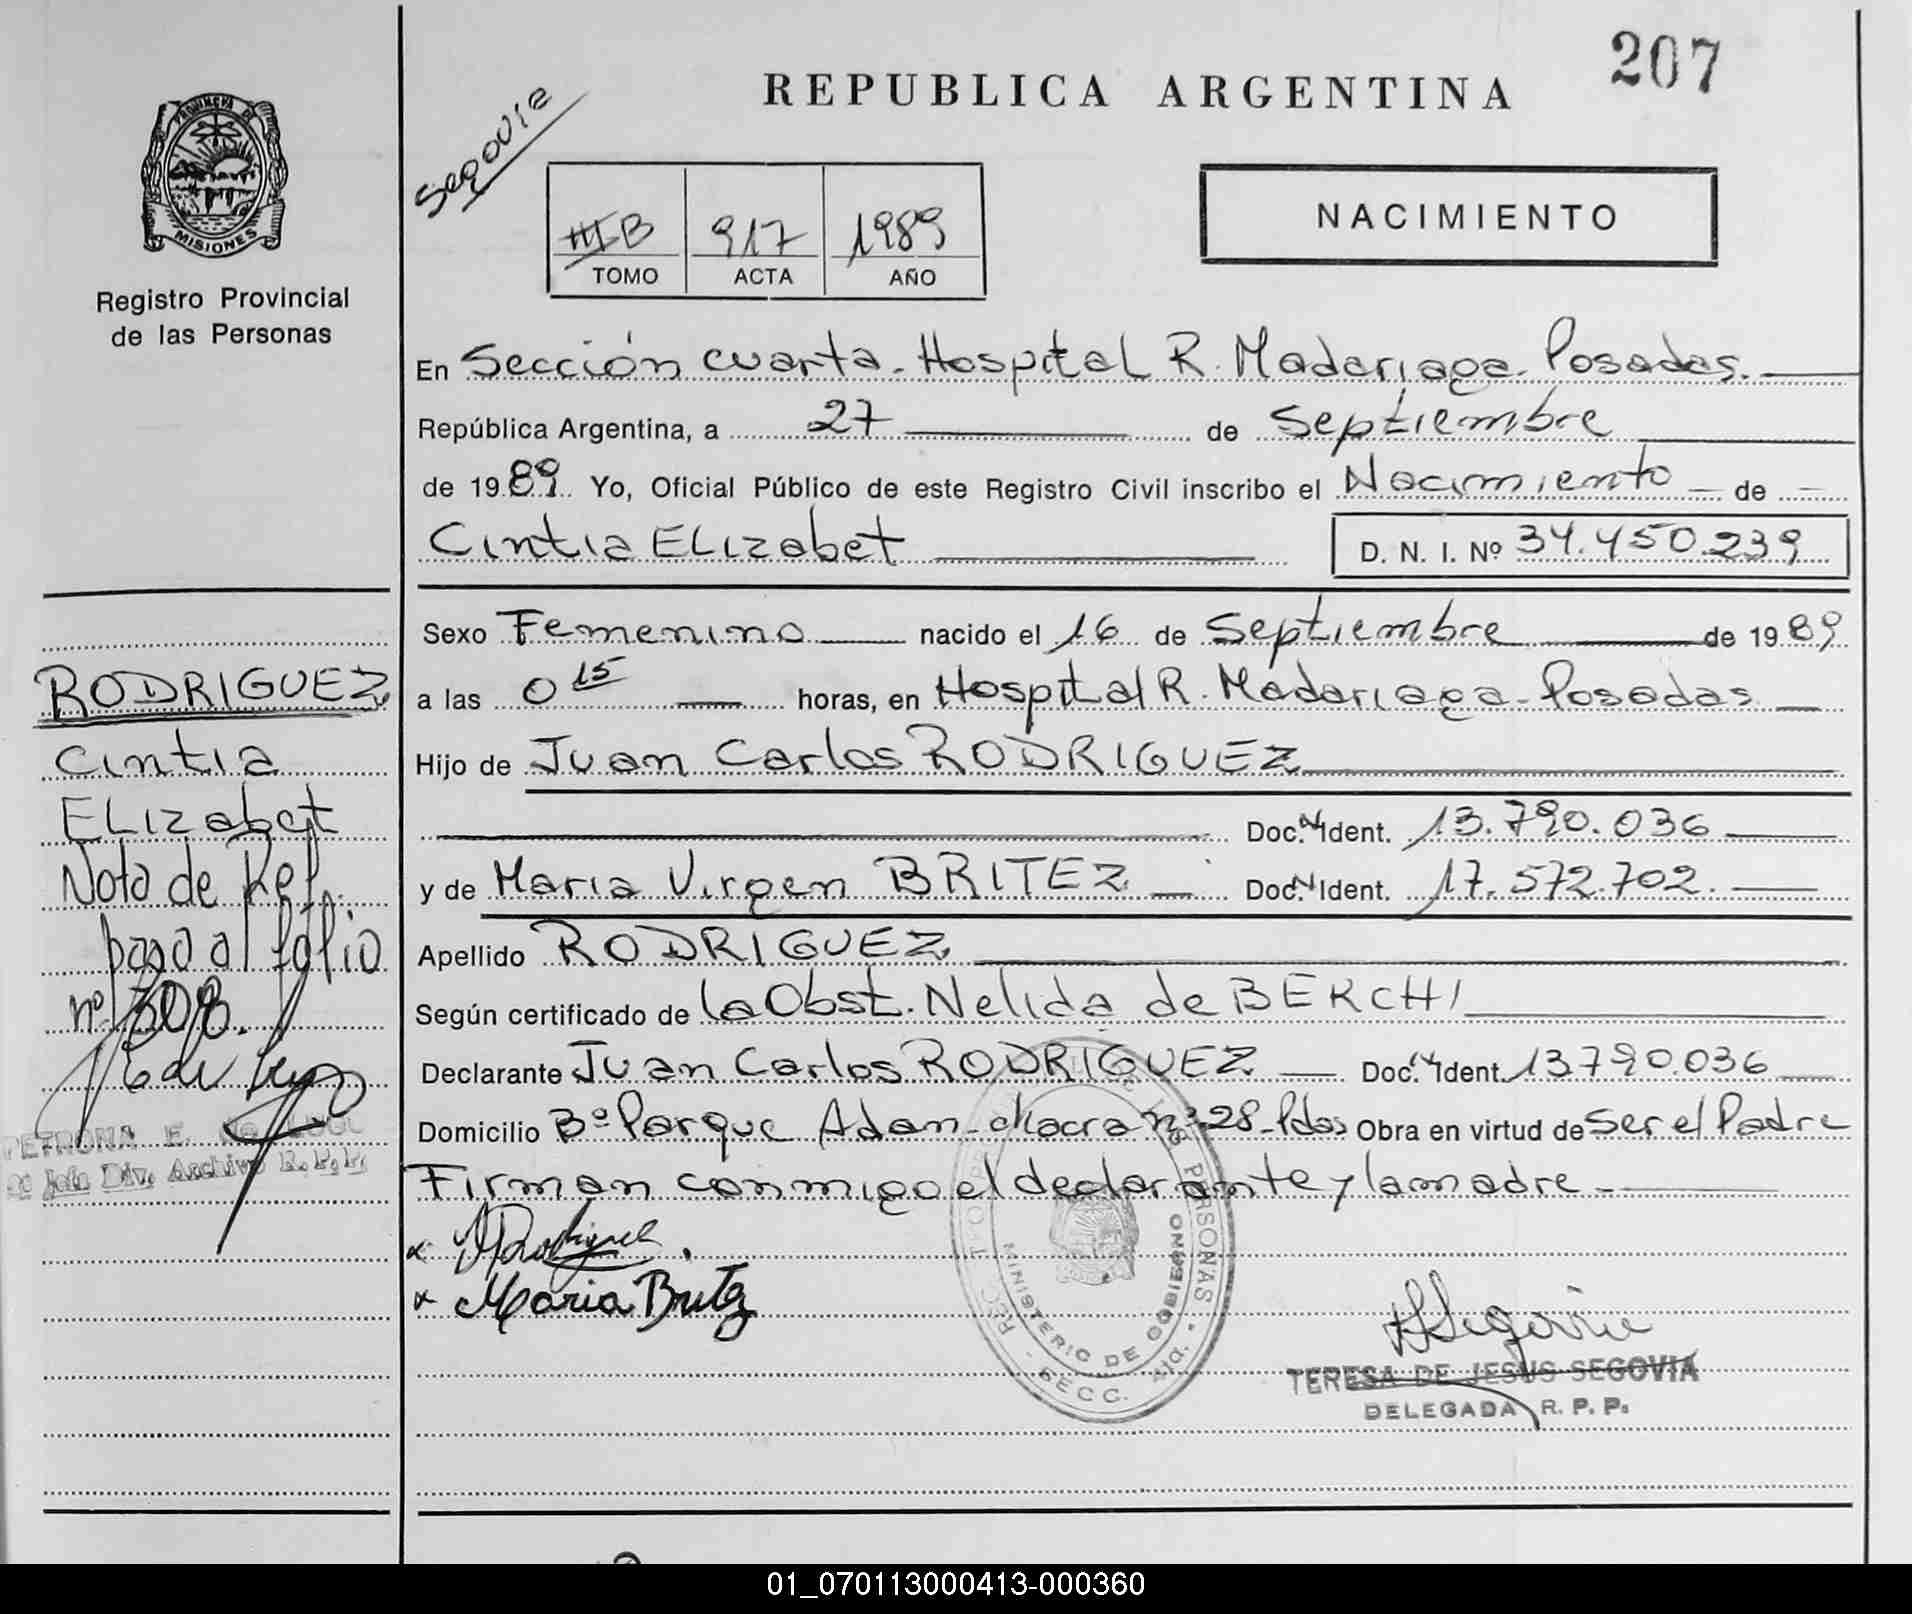 207
REPUBLICA ARGENTINA
Segovia
PROVINCIA DE
MISIONES
Registro Provincial
de las Personas
IIIB 917 1989
TOMO ACTA AÑO
NACIMIENTO
En Sección cuarta - Hospital R. Madariaga - Posadas.
República Argentina, a 27 de Septiembre
de 1989. Yo, Oficial Público de este Registro Civil inscribo el Nacimiento de
Cintia ELizabet D. N. I. Nº 34.450.239
Sexo Femenino nacido el 16 de Septiembre de 1989
a las 0 15 horas, en Hospital R. Madariaga - Posadas
Hijo de Juan Carlos RODRIGUEZ
Doc. Ident. 13.790.036
y de Maria Virgen BRITEZ Doc. Ident. 17.572.702.
Apellido RODRIGUEZ
Según certificado de la Obst. Nelida de BERCHI
Declarante Juan Carlos RODRIGUEZ Doc. Ident. 13790.036
Domicilio Bº Parque Adam - chacra nº 28 - Pdas Obra en virtud de ser el Padre
Firman conmigo el declarante y la madre -
Rodriguez
Maria Britez
MINISTERIO DE GOBIERNO
PERSONAS
SECC. 4ta.
Segovia
TERESA DE JESUS SEGOVIA
DELEGADA R. P. P.
RODRIGUEZ
Cintia
ELizabet
Nota de Ref.
paso al folio
nº 308.
PETRONA E. de LUGO
Jefa Div. Archivo R. P. P.
01_070113000413-000360